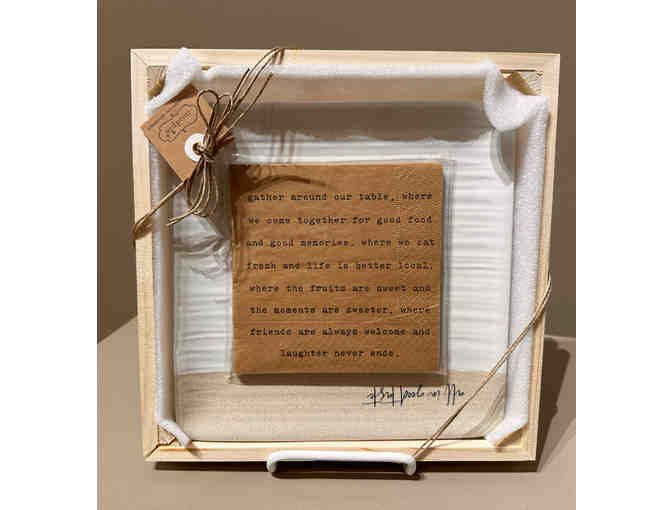 gather around our table, where
we come together for good food
and good memories. where we eat
fresh and life is better local.
where the fruits are sweet and
the moments are sweeter, where
friends are always welcome and
laughter never ends.
all in good taste